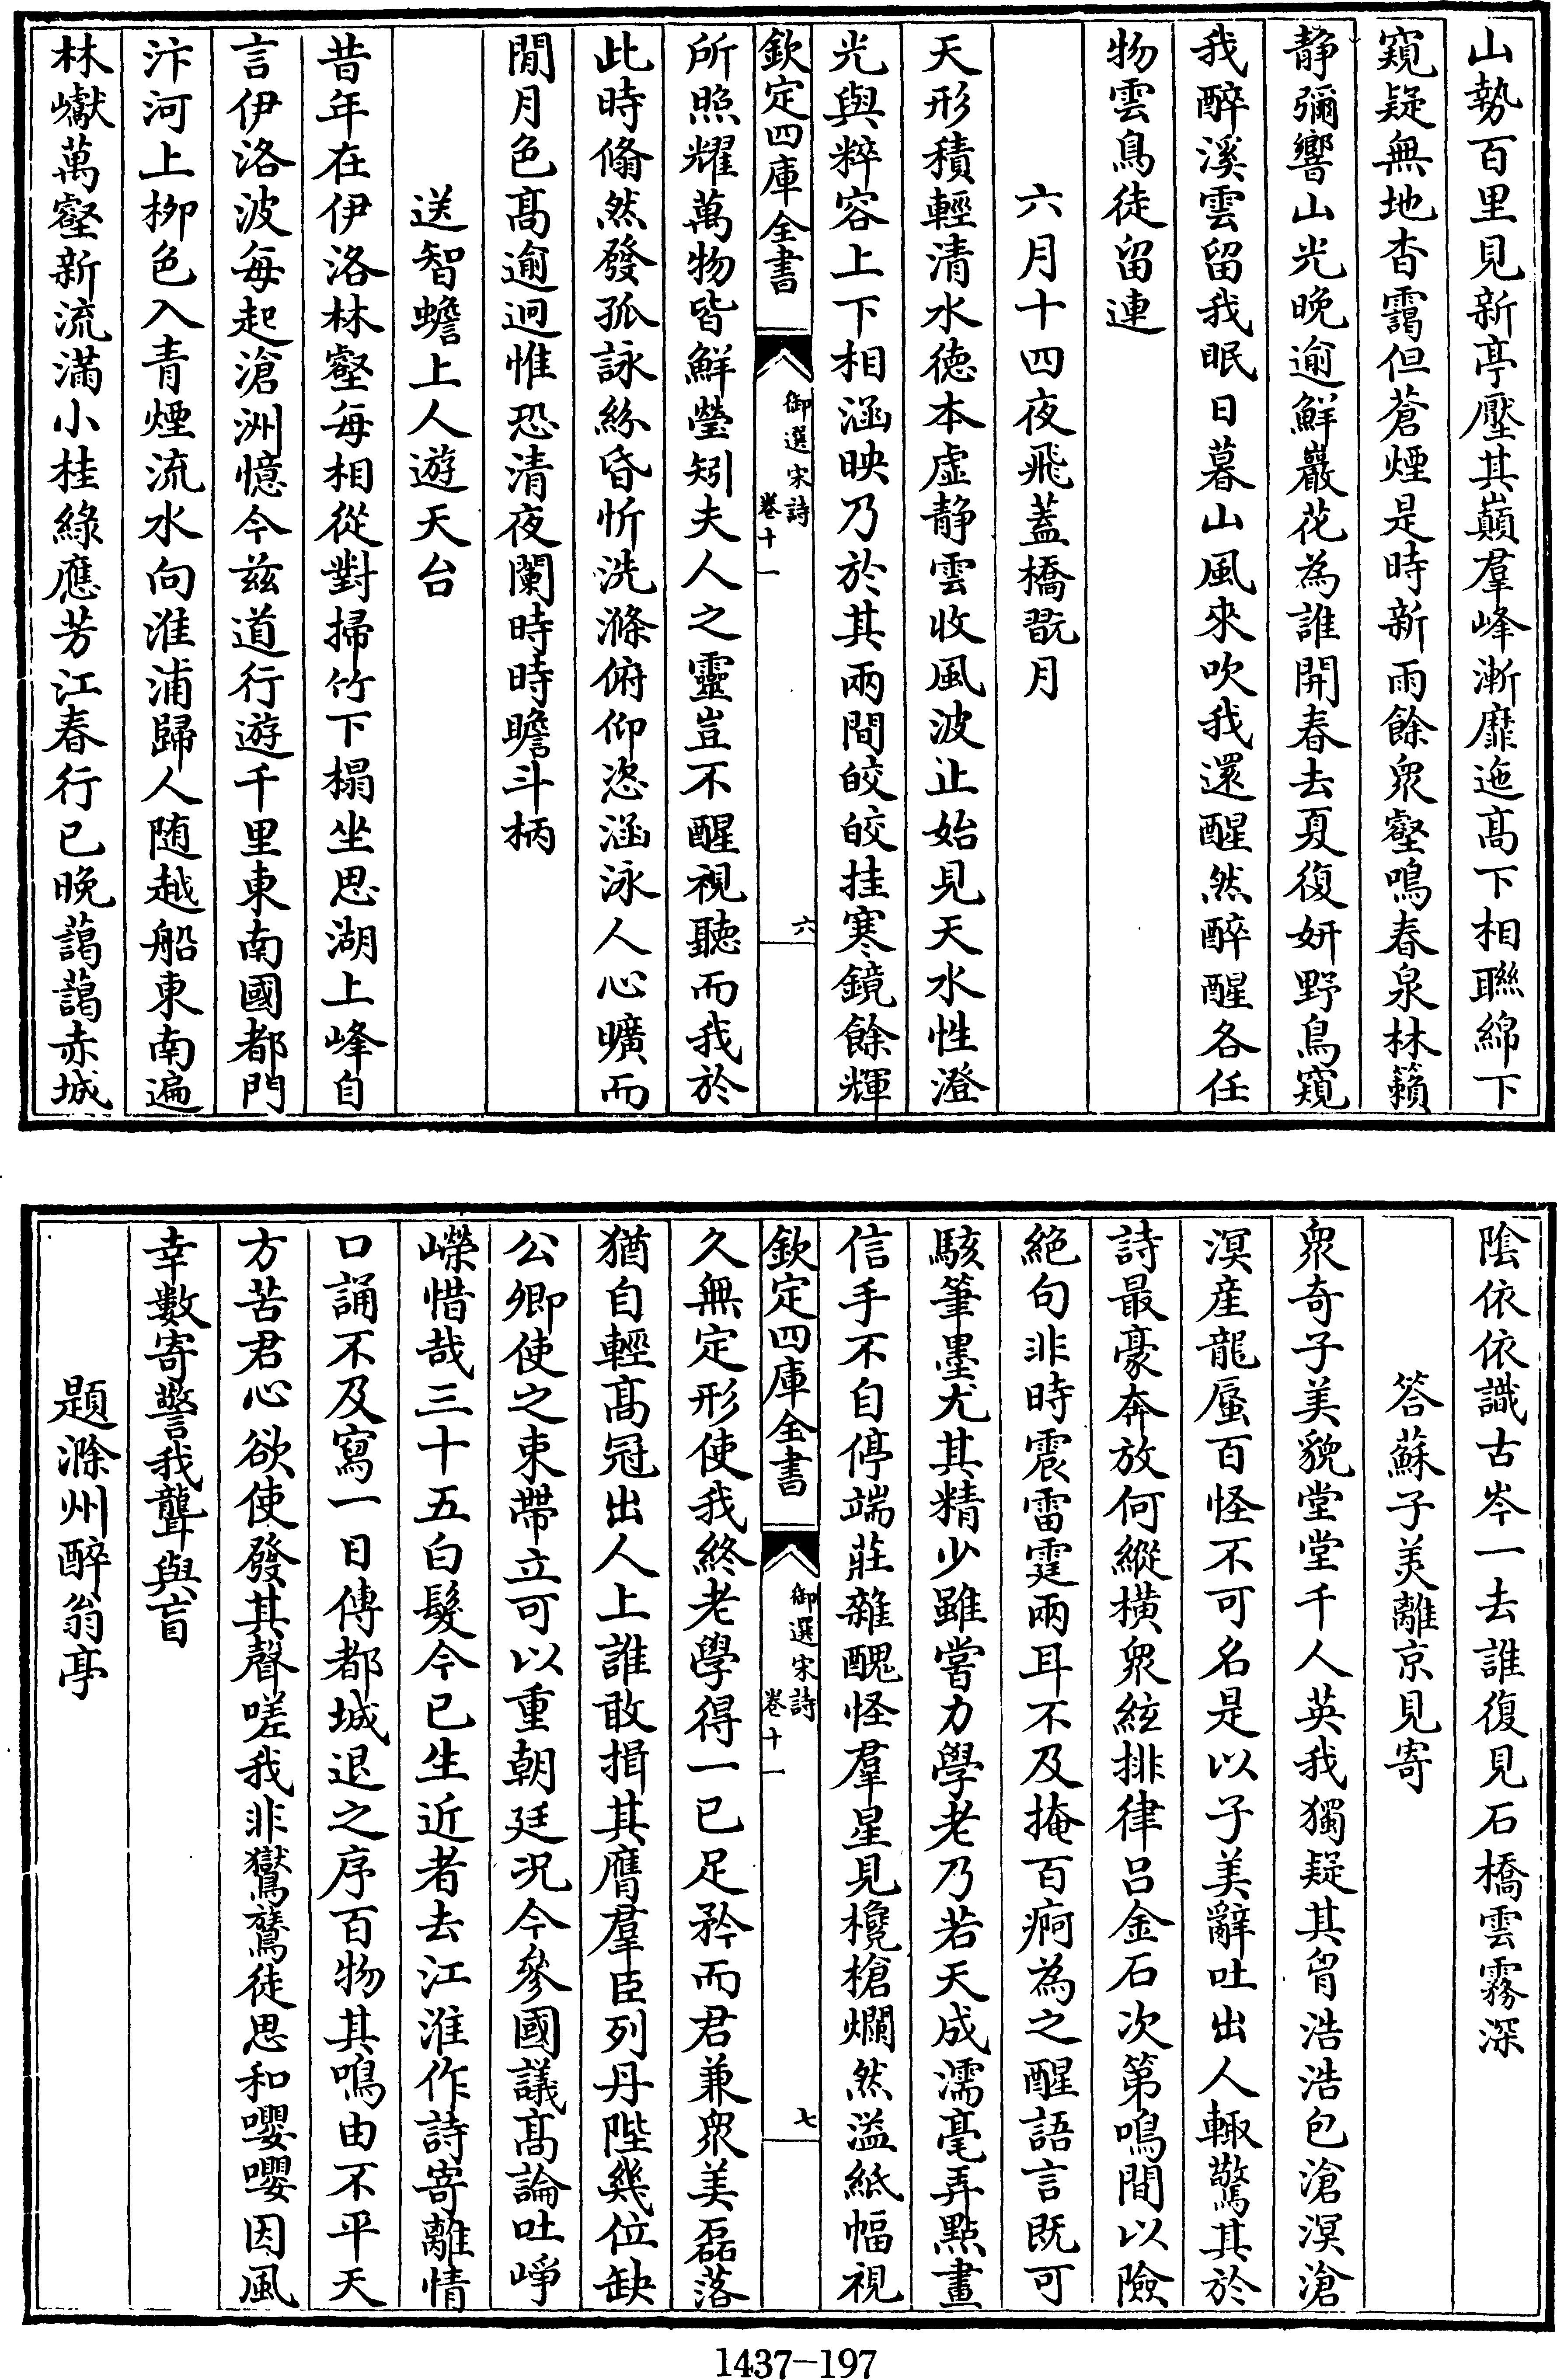 山勢百里見新亭壓其巔羣峰漸靡迤髙下相聯綿下
窺疑無地杳靄但蒼煙是時新雨餘衆壑鳴春泉林籟
静彌響山光晚逾鮮巖花為誰開春去夏復妍野鳥窺
我醉溪雲留我眠日暮山風來吹我還醒然醉醒各任
物雲鳥徒留連
六月十四夜飛蓋橋翫月
天形積輕清水德本虚静雲收風波止始見天水性澄
光與粹容上下相涵映乃於其兩間皎皎挂寒鏡餘輝
欽定四庫全書
御選宋詩
卷十一
六
所照耀萬物皆鮮瑩矧夫人之靈豈不醒視聽而我於
此時翛然發孤詠紛昏忻洗滌俯仰恣涵泳人心曠而
閒月色髙逾迥惟恐清夜闌時時瞻斗柄
送智蟾上人遊天台
昔年在伊洛林壑每相從對掃竹下榻坐思湖上峰自
言伊洛波每起滄洲憶今兹道行遊千里東南國都門
汴河上栁色入青煙流水向淮浦歸人随越船東南遍
林巘萬壑新流滿小桂綠應芳江春行已晚藹藹赤城
陰依依識古岑一去誰復見石橋雲霧深
答蘇子美離京見寄
衆奇子美貌堂堂千人英我獨疑其胷浩浩包滄溟滄
溟産龍蜃百怪不可名是以子美辭吐出人輙驚其於
詩最豪奔放何縱橫衆絃排律吕金石次第鳴間以險
絶句非時震雷霆兩耳不及掩百痾為之醒語言既可
駭筆墨尤其精少雖嘗力學老乃若天成濡毫弄點畫
信手不自停端莊雜醜怪羣星見欃槍爛然溢紙幅視
欽定四庫全書
御選宋詩
卷十一
七
久無定形使我終老學得一已足矜而君兼衆美磊落
猶自輕髙冠出人上誰敢揖其膺羣臣列丹陛幾位缺
公卿使之束帶立可以重朝廷况今參國議髙論吐崢
嶸惜哉三十五白髮今已生近者去江淮作詩寄離情
口誦不及寫一日傳都城退之序百物其鳴由不平天
方苦君心欲使發其聲嗟我非鸑鷟徒思和嚶嚶因風
幸數寄警我聾與盲
題滁州醉翁亭
1437-197